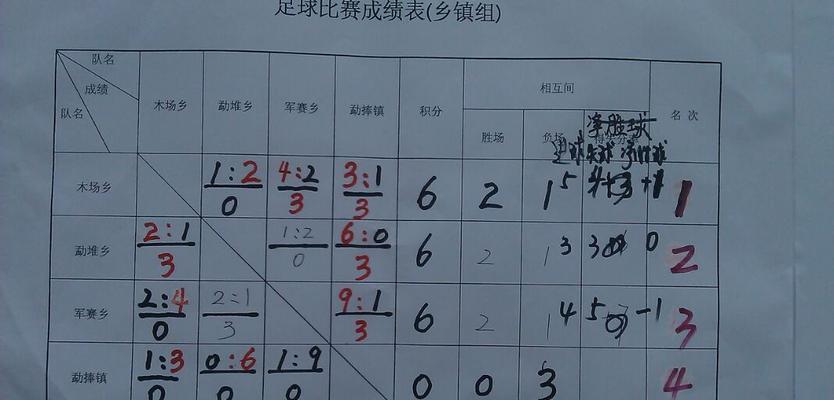 足球比赛成绩表(乡镇组)
队名
成绩
队名
木场乡 勐堆乡 军赛乡 勐捧镇 积分 相互间 名次
胜场 负场
净胜球
进球 失球 净胜球
木场乡 1:2 4:2 3:1 6 2 1 5 4 +1 1
0 3 3
勐堆乡 2:1 1:2 6:0 6 2 1 3 3 0 2
3 0 3
军赛乡 2:4 2:1 9:1 6 2 1 4 5 -1 3
0 3 3
勐捧镇 1:3 0:6 1:9 0 0 3 4
0 0 0